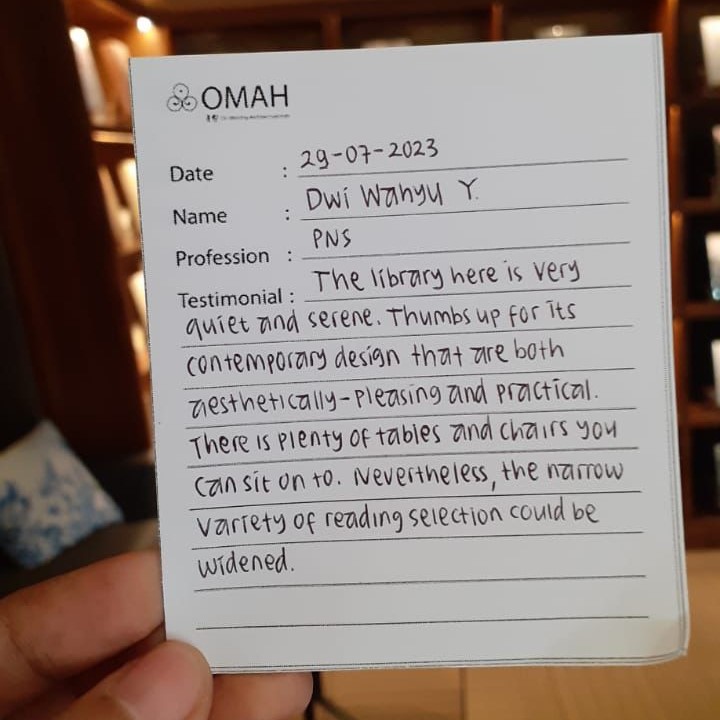 OMAH
Date : 29-07-2023
Name : Dwi Wahyu Y.
Profession : PNS
Testimonial : The library here is very
quiet and serene. Thumbs up for its
contemporary design that are both
aesthetically-pleasing and practical.
There is plenty of tables and chairs you
can sit on to. Nevertheless, the narrow
variety of reading selection could be
widened.